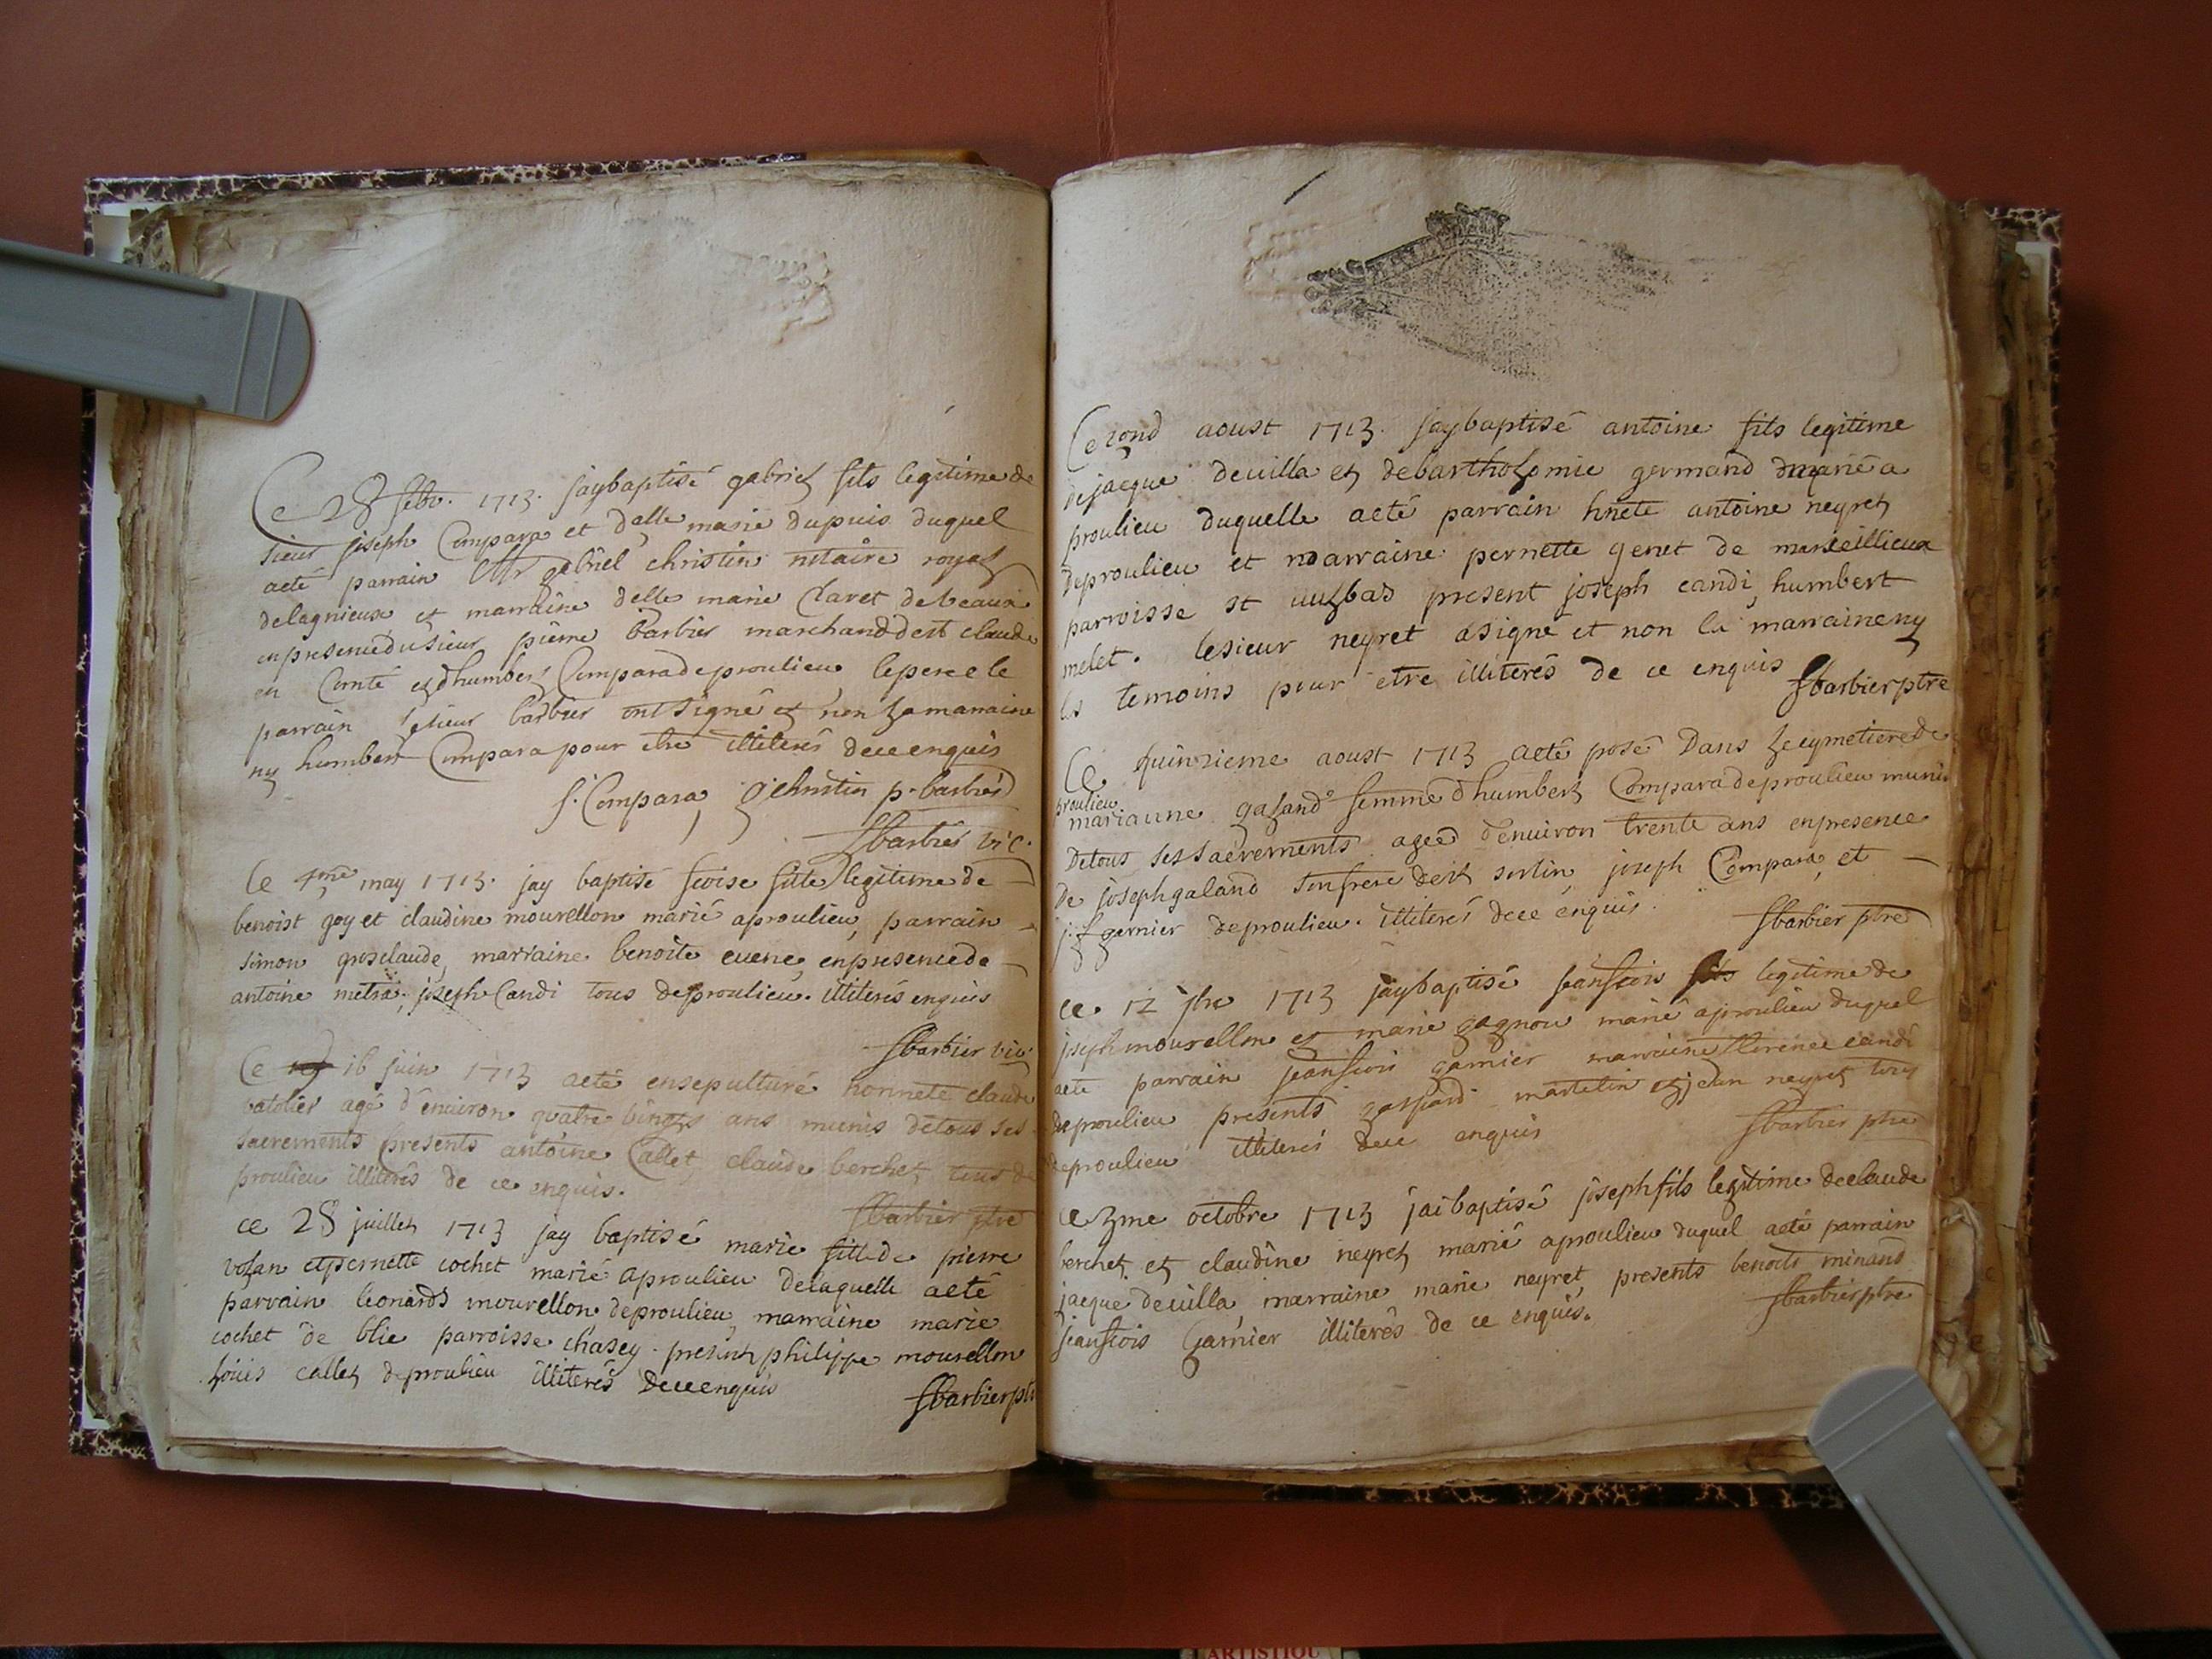 Ce 28 febr. 1713. jaybaptisé gabriel fils legitime de
sieur joseph Compara et delle marie dupuis duquel
aeté parrain Mr gabriel christin notaire royal
delagnieux et marraine delle marie Claret debeaux
enpresencedusieur pierre barbier marchanddest claude
en Comté et dhumbert Comparadeproulieu leperele
parrain lesieur barbier ontsigné et non lamarraine
ny humbert Compara pour etre illiterés deceenquis
j. Compara gchristin p. barbier
fbarbier vic.
le 4me may 1713. jay baptisé fcoise fille legitime de
benoist goy et claudine mourellon marié aproulieu, parrain
simon grosclaude, marraine benoite euene, enpresencede
antoine metra. joseph Candi tous deproulieu. illiterés enquis
fbarbier vic.
Ce 16 juin 1713 aeté ensepulturé honnete claude
agé d'enuiron quatre bingts ans munis detous ses
sacrements presents antoine Callet, claude berchet, tous de
proulieu illiterés de ce enquis.
fbarbier ptre
ce 28 juillet 1713 jay baptisé marie fillede pierre
volan etpernette cochet marié aproulieu delaquelle aeté
parrain leonard mourellon, deproulieu, marraine marie
cochet de blie parroisse chasey. present philippe mourellon
louis callet deproulieu illiterés deceenquis
fbarbier ptre
Ce 2ond aoust 1713. jaybaptisé antoine fils legitime
dejacque deuilla et debartholomie germand marié a
proulieu duquelle aeté parrain hnete antoine neyret
deproulieu et marraine pernette genet de marseillieux
parroisse st uulbas present joseph candi, humbert
melet. lesieur neyret asigné et non la marraineny
les temoins pour etre illiterés de ce enquis fbarbierptre
Ce quinzieme aoust 1713 aeté posé Dans lecymetierede
proulieu
marianne galand femme dhumbert Comparadeproulieu munis
Detous sessacrements agee d'enuiron trente ans enpresence
de josephgaland sonfrere dest sorlin joseph Compara, et
garnier deproulieu. illiterés dece enquis.
fbarbier ptre
ce. 12 7bre 1713 jaybaptisé jeanfcois fils legitime de
joseph mourellon et marie gagnou marié aproulieu duquel
aeté parrain jeanfcois garnier marraine florence candi
deproulieu presents gaspard martelin etjean neyret tous
deproulieu illiterés dece enquis
fbarbier ptre
ce 3me octobre 1713 jaibaptisé josephfils legitime declaude
berchet, et claudine neyret marié aproulieu duquel aeté parrain
jacque deuilla marraine marie neyret, presents benoit minand
jeanfcois Garnier illiterés de ce enquis.
fbarbierptre
ARTISTIQU